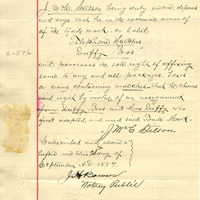 J. McC. Stetson being duly sworn, deposes
and says that he is the exclusive owner of
of the trade mark, or label
Telephone Matches
Duffy Bros
and possesses the sole right of affixing
same to any and all packages, boxes
or cans containing matches that he claims
said right by virtue of an assignment
from Duffy Bros and Duffy, who
first adopted and used said Trade Mark.
J McC Stetson
Subscribed and sworn to
before me this day of
September A.D. 1889
Notary Public